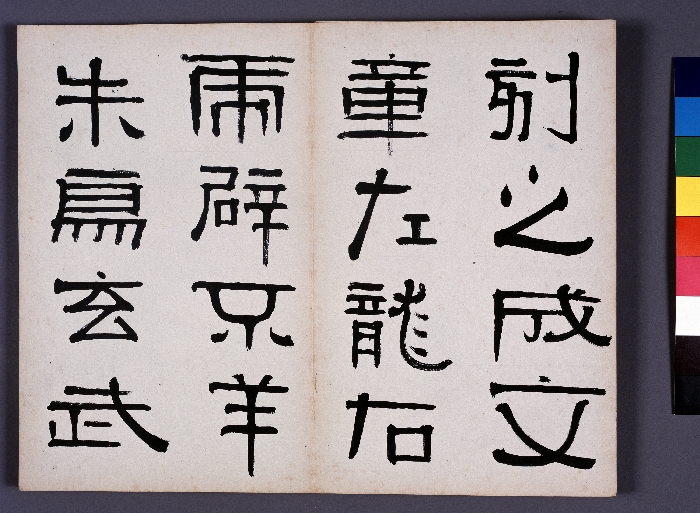 刻之成文
章左龍右
虎辟不羊
朱鳥玄武